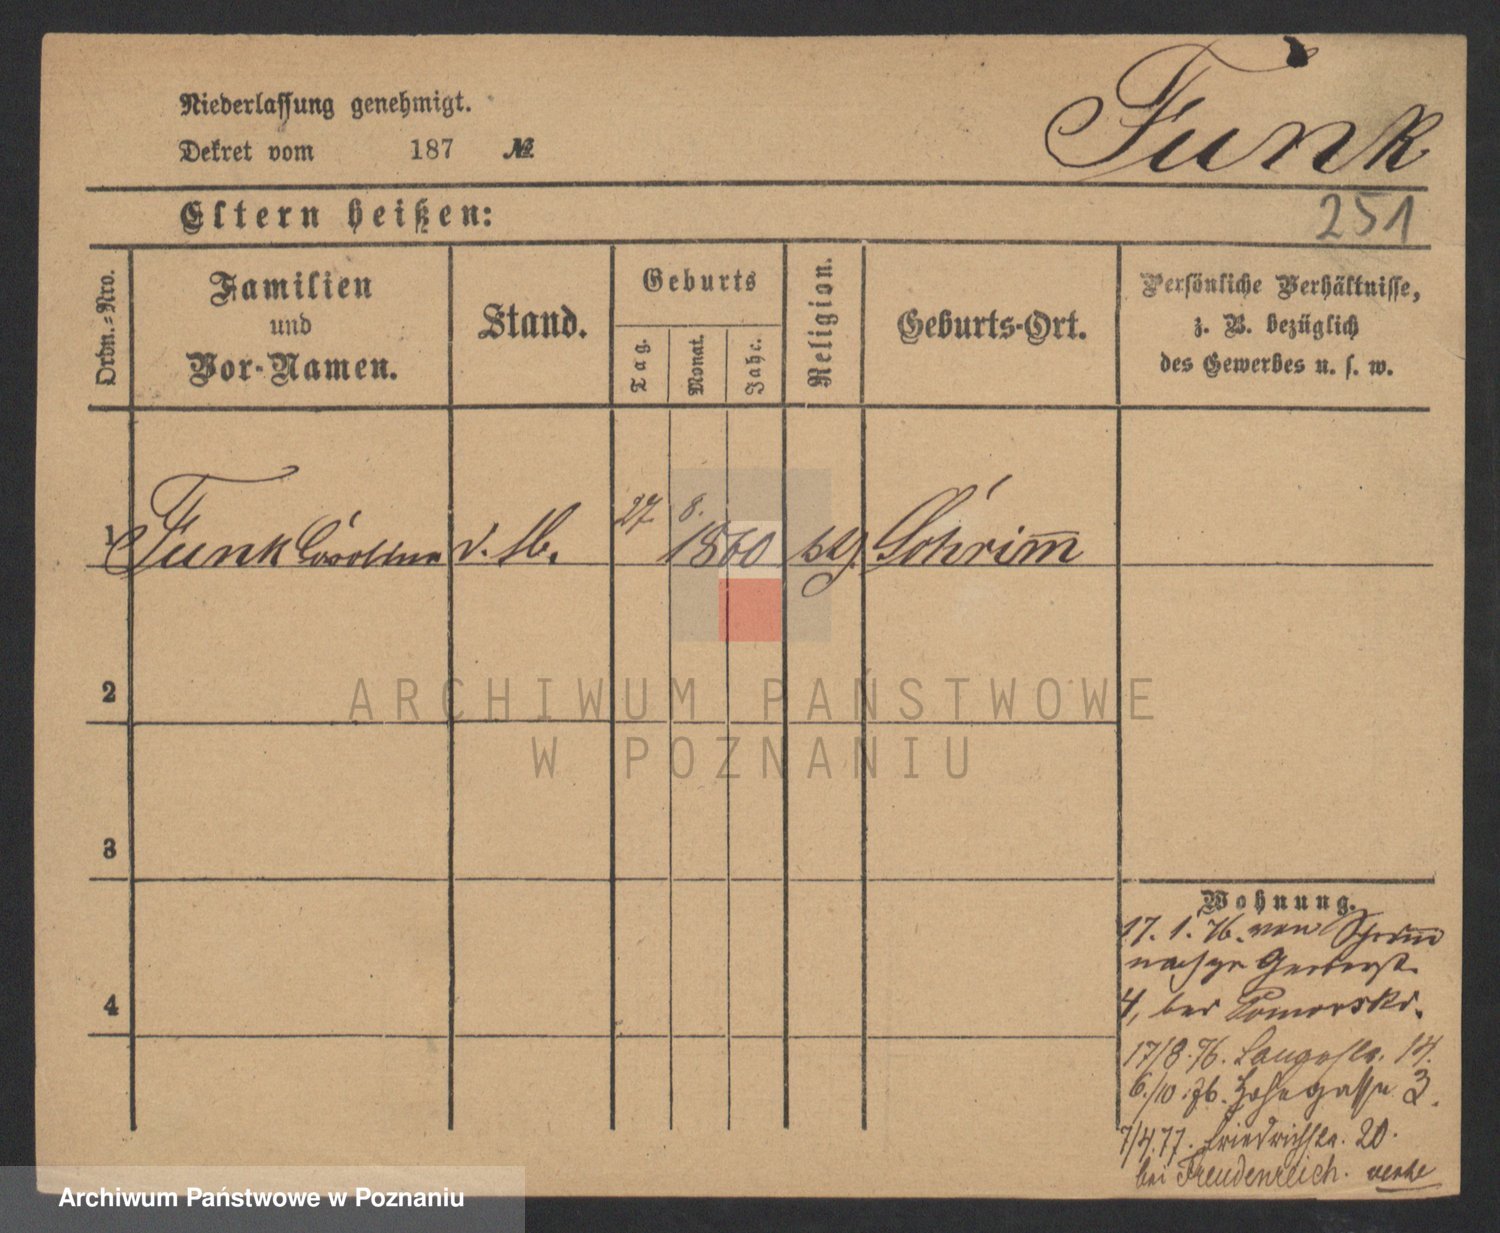 Niederlassung genehmigt.
Dekret vom 187 №
Funk
251
Eltern heißen:
Ordn.=Nro.
Familien
und
Vor-Namen.
Stand.
Geburts
Tag.
Monat.
Jahr.
Religion.
Geburts-Ort.
Persönliche Verhältnisse,
z. B. bezüglich
des Gewerbes u. s. w.
1 Funk 27. 8. 1860 Schrimm
2
3
4
ARCHIWUM PAŃSTWOWE
W POZNANIU
Wohnung.
17. 1. 76. von Schrimm
4, bei Pomorski.
17/8. 76. Langestr. 14.
6/10. 76. Hohegasse 3.
7/4. 77. Friedrichstr. 20.
bei Freudenreich.
Archiwum Państwowe w Poznaniu